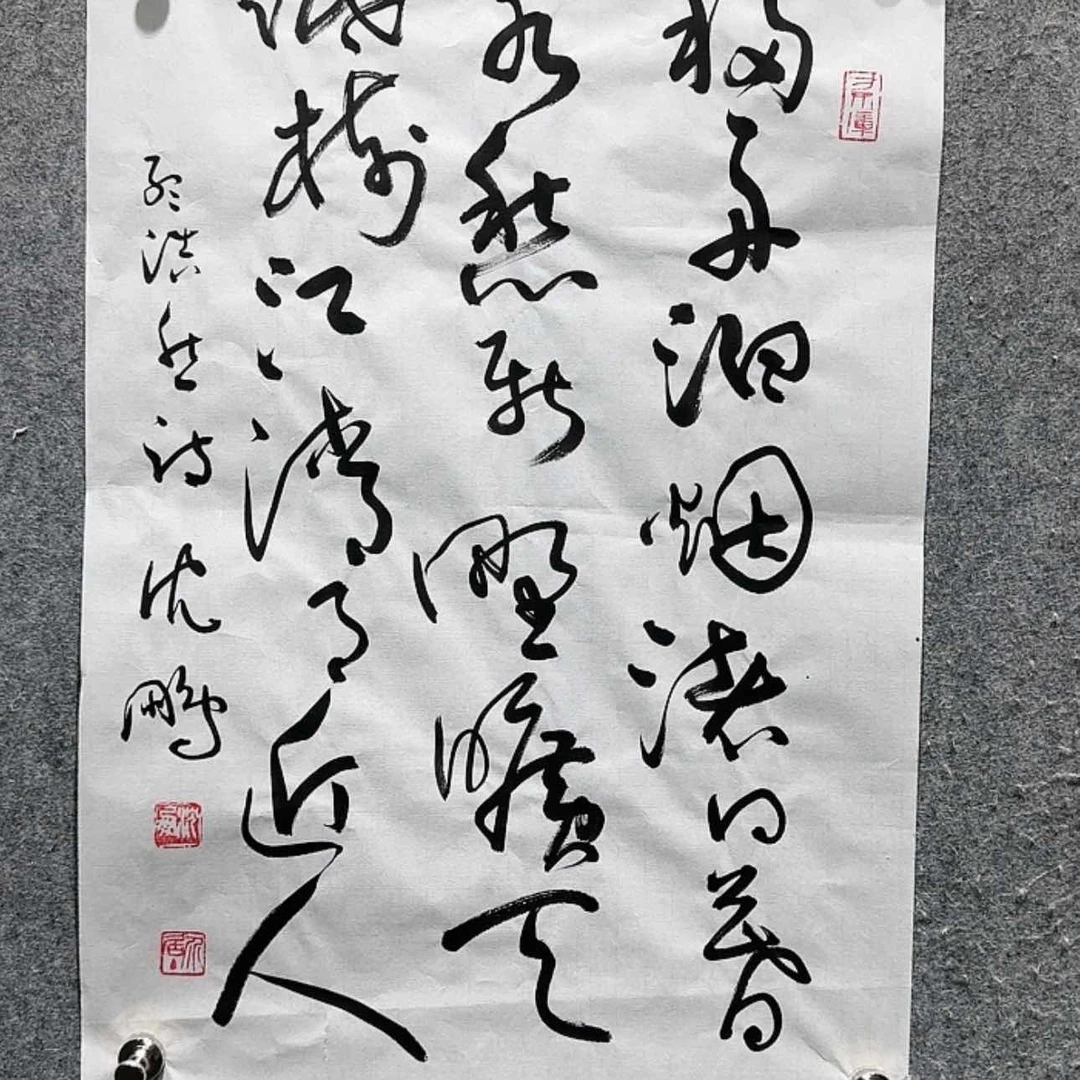 移舟泊烟渚日暮
客愁新野曠天
低樹江清月近人
孟浩然诗 沈鵬